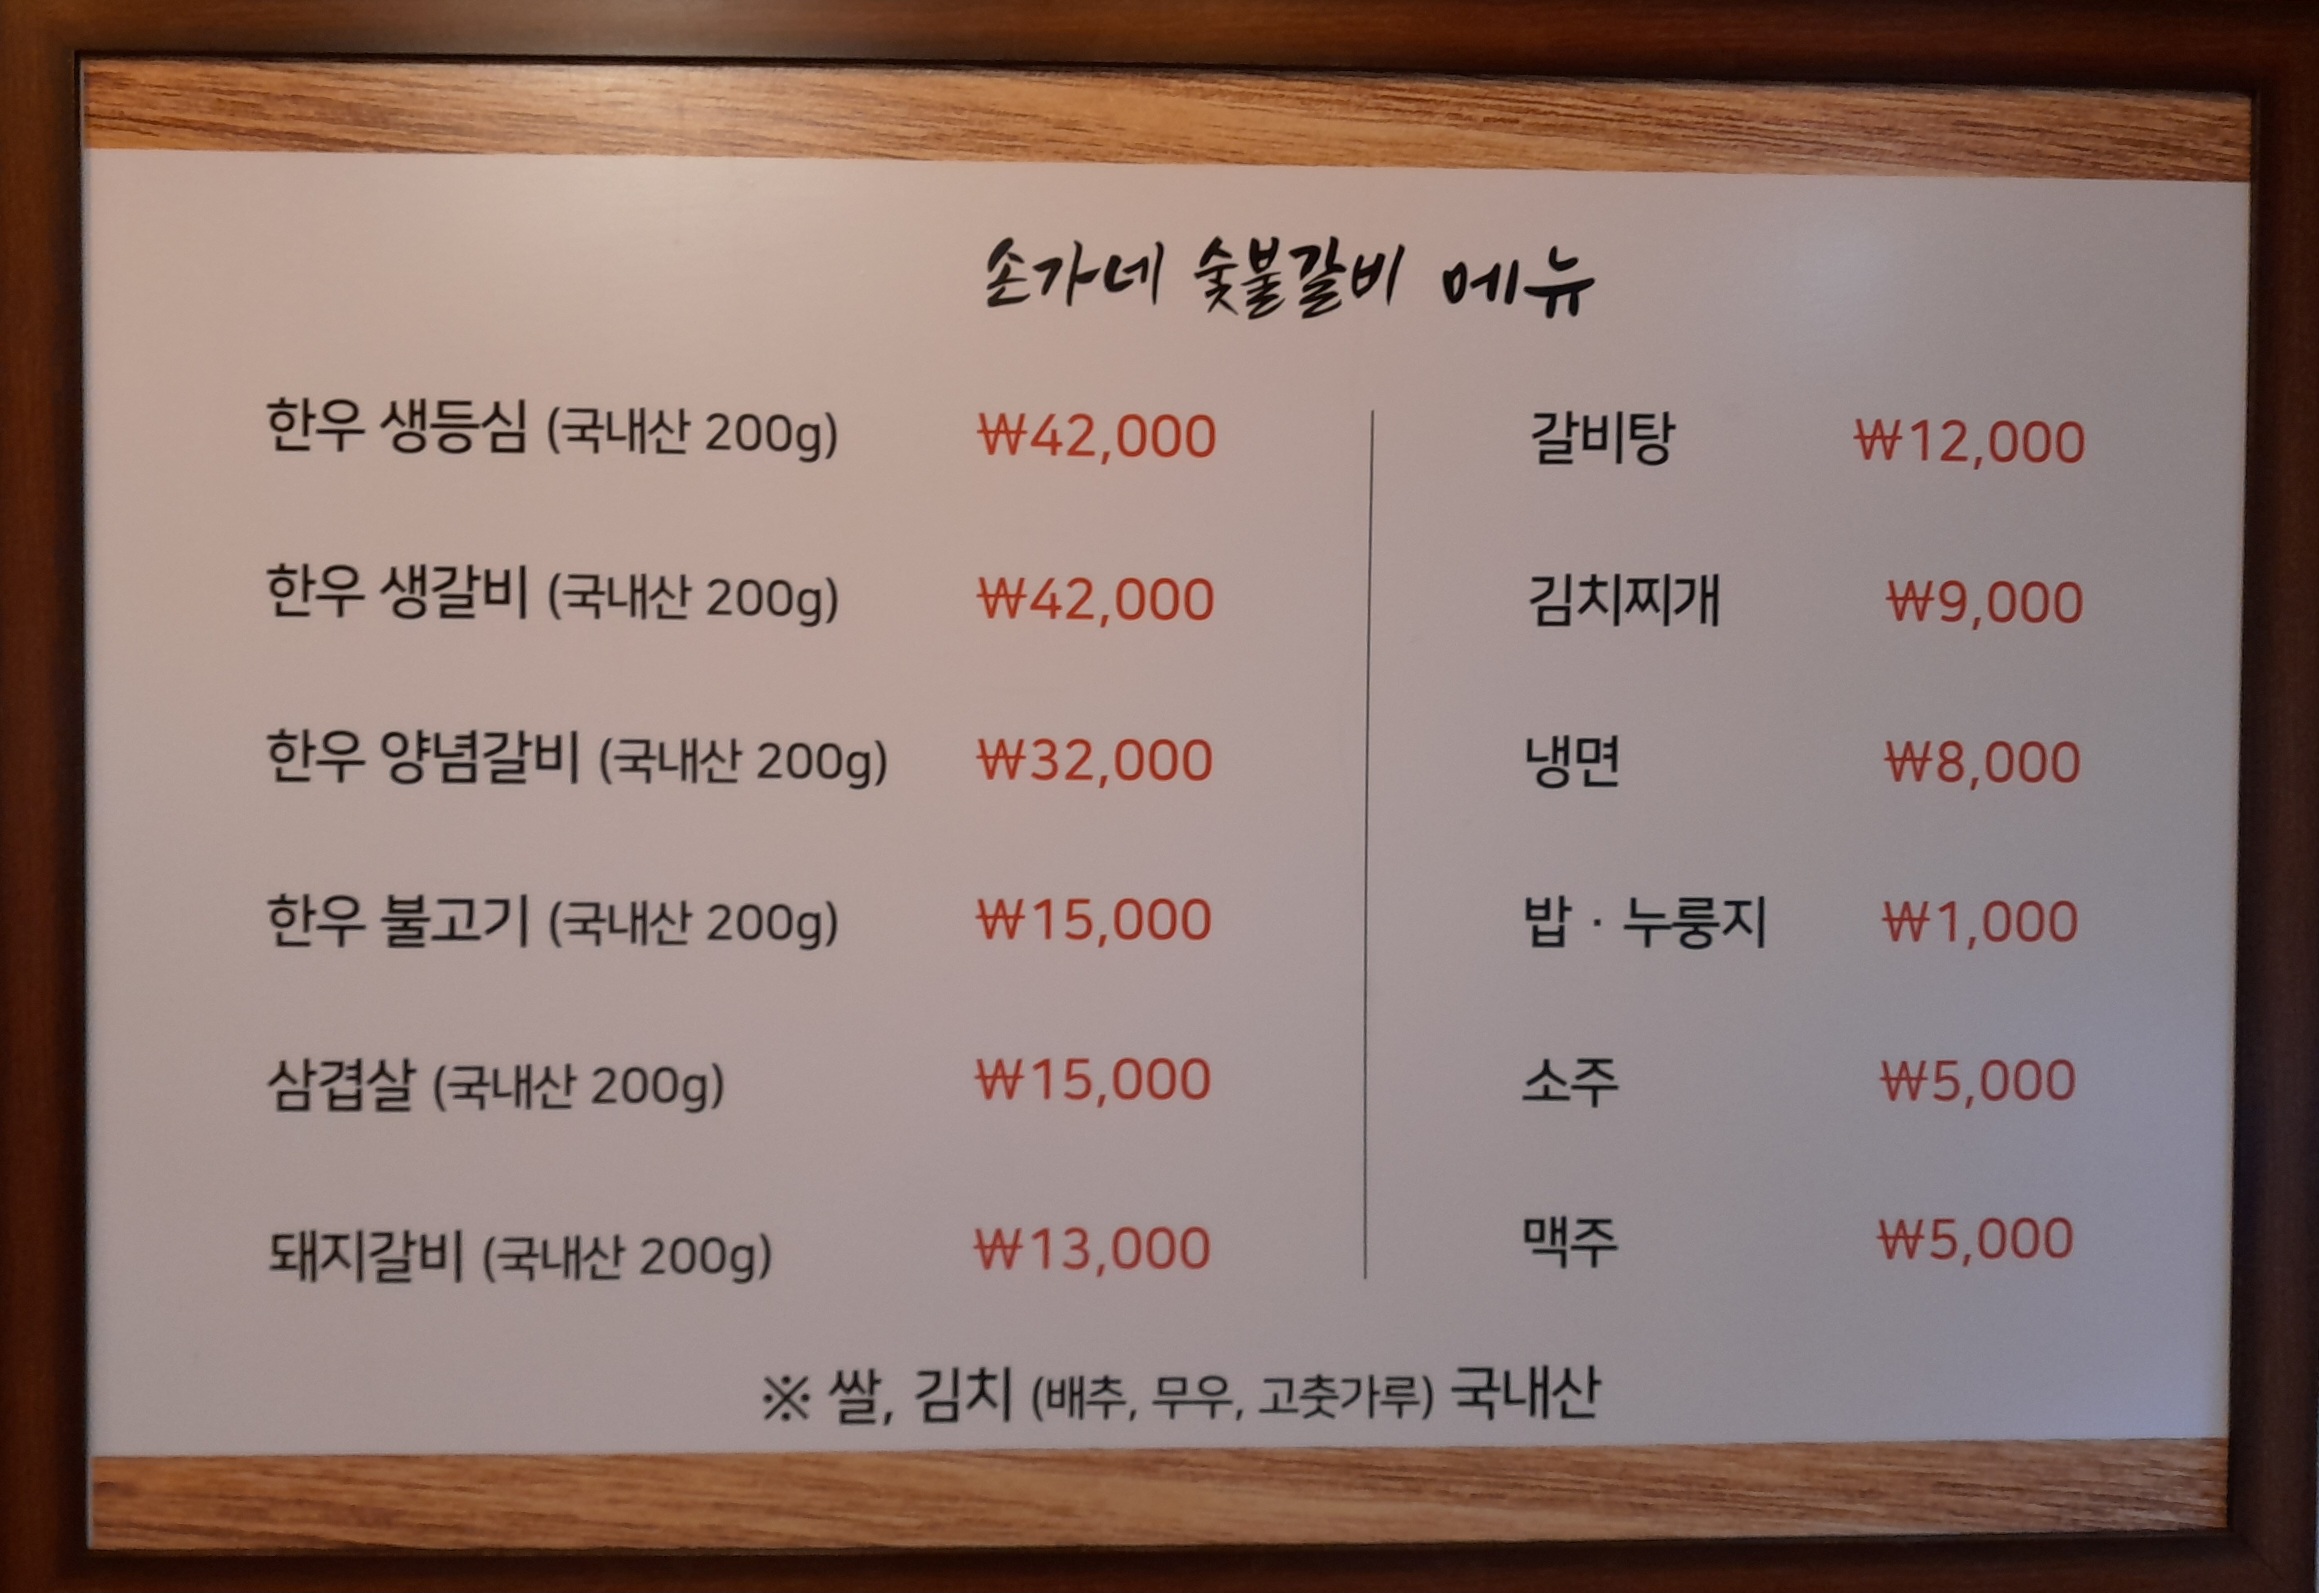 손가네 숯불갈비 메뉴
한우 생등심 (국내산 200g) ₩42,000
한우 생갈비 (국내산 200g) ₩42,000
한우 양념갈비 (국내산 200g) ₩32,000
한우 불고기 (국내산 200g) ₩15,000
삼겹살 (국내산 200g) ₩15,000
돼지갈비 (국내산 200g) ₩13,000
갈비탕 ₩12,000
김치찌개 ₩9,000
냉면 ₩8,000
밥 · 누룽지 ₩1,000
소주 ₩5,000
맥주 ₩5,000
※ 쌀, 김치 (배추, 무우, 고춧가루) 국내산